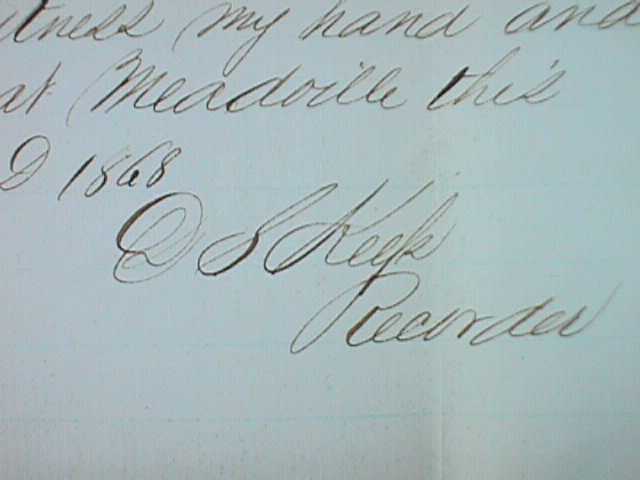 itness my hand and
at Meadville this
D 1868
D S Keep
Recorder